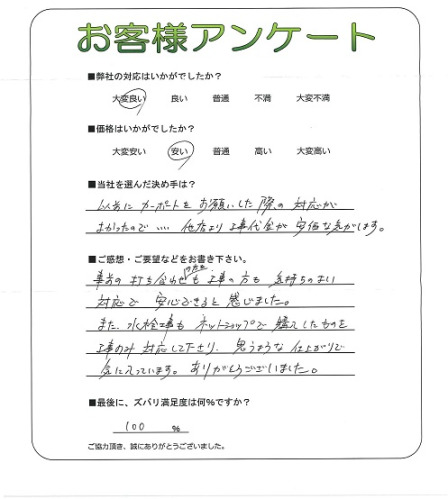 お客様アンケート
■弊社の対応はいかがでしたか？
大変良い 良い 普通 不満 大変不満
■価格はいかがでしたか？
大変安い 安い 普通 高い 大変高い
■当社を選んだ決め手は？
以前に カーポートを お願いした 際の 対応が
よかったので…. 他店より 工事代金が 安価な気がします。
■ご感想・ご要望などをお書き下さい。
事前の 打ち合わせも 工事の方も 気持ちのよい
対応で 安心できると 感じました。
また、水栓工事も ネットショップで 購入したものを
工事のみ 対応して下さり、思うような 仕上がりで
気に入っています。ありがとうございました。
■最後に、ズバリ満足度は何%ですか？
100 %
ご協力頂き、誠にありがとうございました。